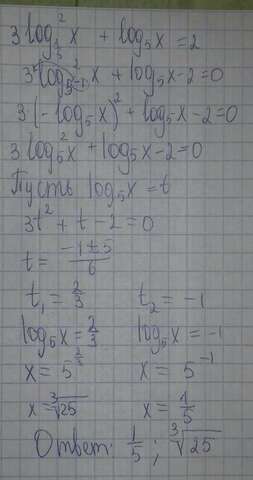 3log²_{1/5} x + log₅x = 2
3log²_{5⁻¹} x + log₅x - 2 = 0
3(-log₅x)² + log₅x - 2 = 0
3log₅²x + log₅x - 2 = 0
Пусть log₅x = t
3t² + t - 2 = 0
t = (-1 ± 5)/6
t₁ = 2/3 t₂ = -1
log₅x = 2/3 log₅x = -1
x = 5^{2/3} x = 5⁻¹
x = ∛25 x = 1/5
Ответ: 1/5 ; ∛25